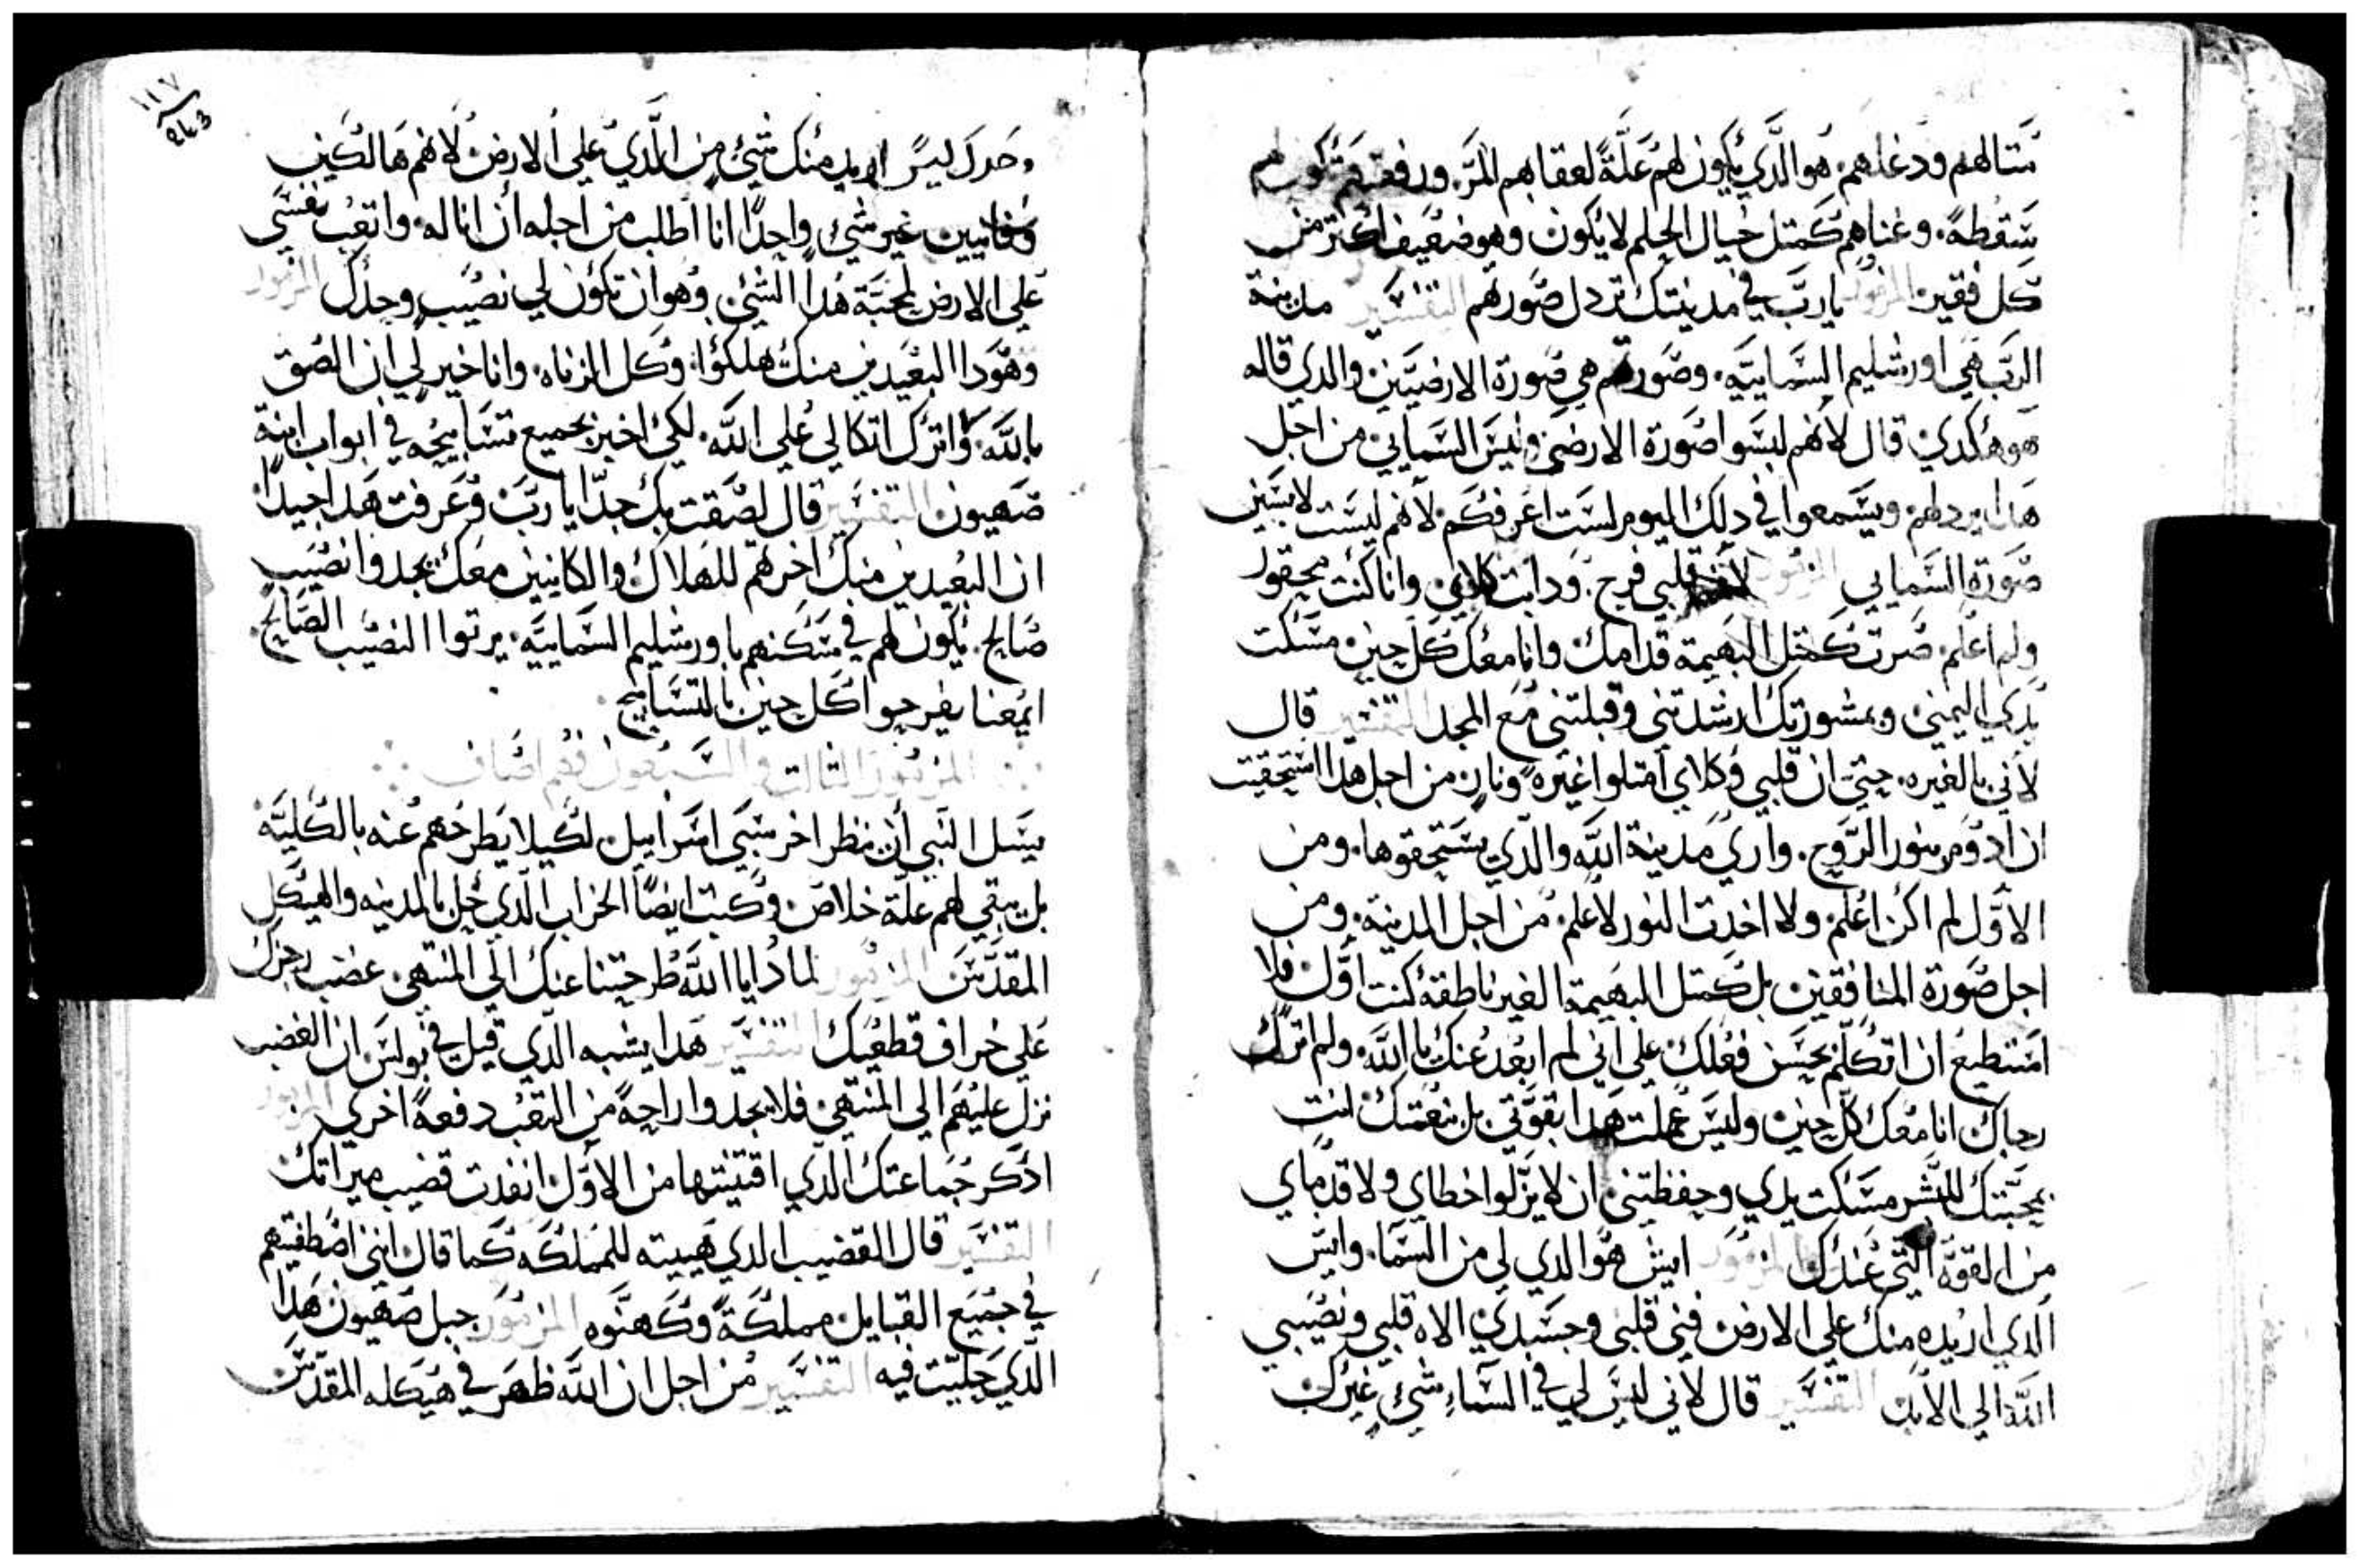 متالهم ودغلهم. هو الذي يكون لهم علة لعقابهم المر. ورفعتهم تكون لهم
سقطة. وغناهم كمتل خيال الحلم لا يكون وهو ضعيف اكتر من
كل فقير. المزمور يا رب في مدينتك تردل صورهم التفسير مدينة
الرب هي اورشليم السماييه. وصورتهم هي صورة الارضيين والدي قاله
هو هكدي قال لانهم لبسوا صورة الارضي وليس السمايي من اجل
هدا يردلهم. ويسمعوا في دلك اليوم لست اعرفكم. لانهم ليست لابسين
صورة السمايي المزمور لان قلبي فرح. ودابت كلاي. وانا كنت محقور
ولم اعلم. صرت كمتل البهيمة قدامك وانا معك كل حين. مسكت
يدي اليمني وبمشورتك ارشدتني وقبلتني مع المجد التفسير قال
لاني بالغيره. حتي ان قلبي وكلاي امتلوا غيره ونار من اجل هدا استحقيت
ان ادوم بنور الروح. واري مدينة الله والدي يستحقوها. ومن
الاول لم اكن اعلم. ولا اخدت النور لاعلم من اجل المدينة. ومن
اجل صورة المنافقين بل كمتل البهيمة الغير ناطقه كنت اول فلا
استطيع ان اتكلم بحسن فعلك علي اني لم ابعد عنك يا الله. ولم اترك
رجاك انا معك كل حين. وليس عملت هدا بقوتي بل بنعمتك انت
بمحبتك للبشر مسكت يدي وحفظتني ان لا يزلوا خطاي ولا قدماي
من القوة التي عندك المزمور ايش هو الدي لي من السما. وايش
الدي اريده منك علي الارض فني قلبي وجسدي الاه قلبي ونصيبي
الله الي الابد التفسير قال لاني ليس لي في السماء شي غيرك
وحدك ليس اريد منك شي من الدي علي الارض لانهم هالكين
وفانيين غير شي واحدا انا اطلب من اجله ان اناله. واتعب نفسي
علي الارض لمحبة هدا الشي. وهو ان تكون لي نصيب وحدك المزمور
وهودا البعيدين منك هلكوا. وكل الزناه. وانا خير لي ان التصق
بالله. واترك اتكالي علي الله. لكي اخبر بجميع تسابيحه في ابواب ابنة
صهيون التفسير قال لصقت بك جدا يا رب وعرفت هدا جيدا.
ان البعيدين منك اخرهم للهلاك والكاينين معك يجدوا نصيب
صالح. يكون لهم في مسكنهم باورشليم السماييه. يرتوا النصيب الصالح.
ايمعنا يفرحوا كل حين بالتسابيح
المزمور التالت والسبعون فهم اصاف
يسل النبي ان ينظر اخر سبي اسراييل لكيلا يطرحهم عنه بالكليه
بل يبقي لهم علة خلاص. وكتب ايضا الخراب الدي حل بالمدينه والهيكل
المقدس المزمور لمادا يا الله طرحتنا عنك الي المنتهي. غضب رجزك
علي خراف قطعيك التفسير هدا يشبه الدي قيل في بولس ان الغضب
نزل عليهم الي المنتهي فلا يجدوا راحة من التعب دفعة اخري المزمور
ادكر جماعتك الدي اقتنيتها من الاول انقدت قضيب ميراتك
التفسير قال القضيب الدي هييته للمملكه كما قال انني اصطفيتهم
في جميع القبايل مملكة وكهنوه المزمور جبل صهيون هدا
الدي حليت فيه التفسير من اجل ان الله ظهر في هيكله المقدس